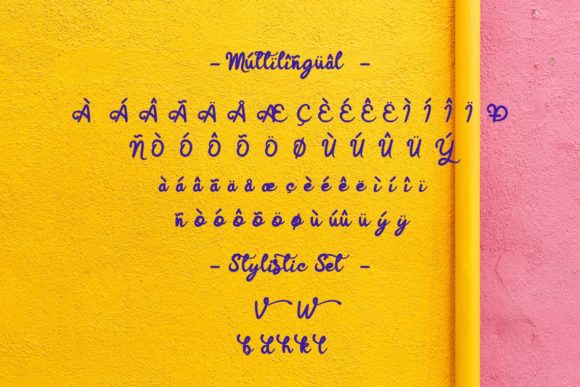 - Múltilîñgüâl -
À Á Â Ã Ä Å Æ Ç È É Ê Ë Ì Í Î Ï Ð
Ñ Ò Ó Ô Õ Ö Ø Ù Ú Û Ü Ý
à á â ã ä å æ ç è é ê ë ì í î ï
ñ ò ó ô õ ö ø ù ú û ü ý ÿ
- Stylistic Set -
V W
b h k l